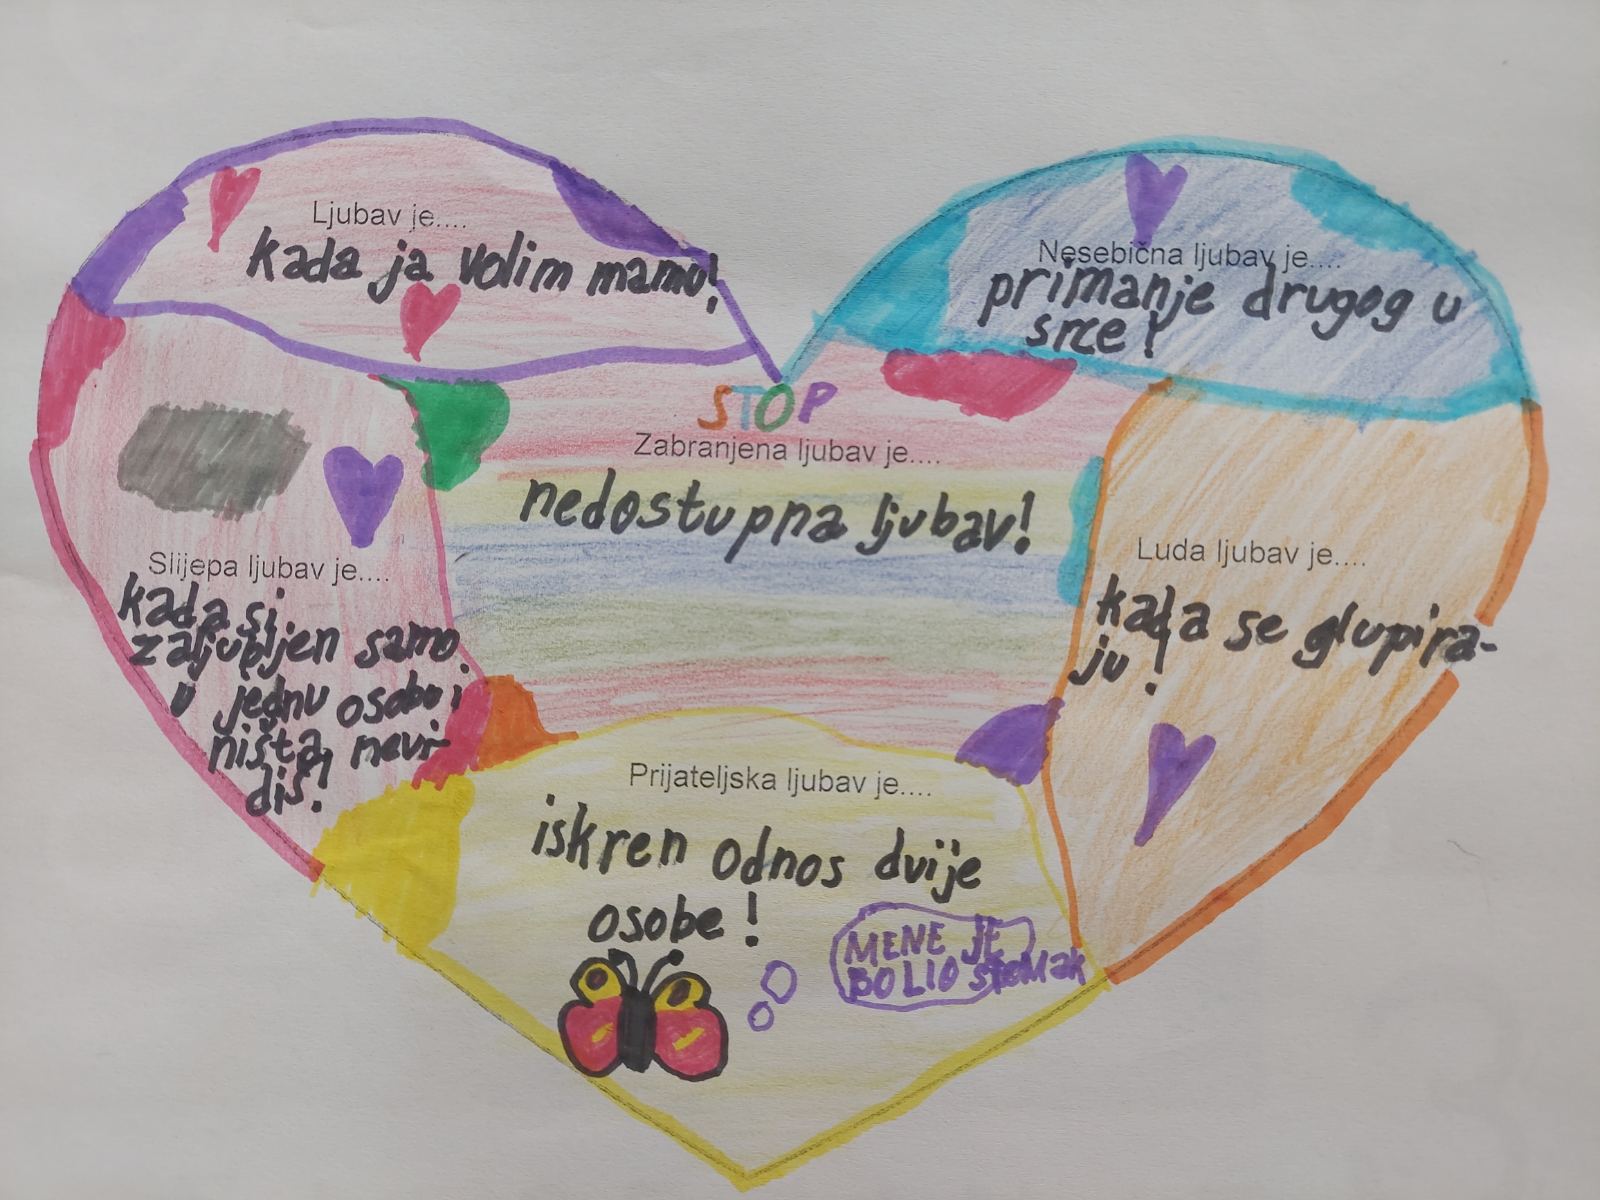 Ljubav je....
kada ja volim mamu!
Nesebična ljubav je....
primanje drugog u
srce!
STOP
Zabranjena ljubav je....
nedostupna ljubav!
Slijepa ljubav je....
kada si
zaljubljen samo
u jednu osobu i
ništa nevi-
diš!
Luda ljubav je....
kada se glupira-
ju!
Prijateljska ljubav je....
iskren odnos dvije
osobe!
MENE JE
BOLIO stomak